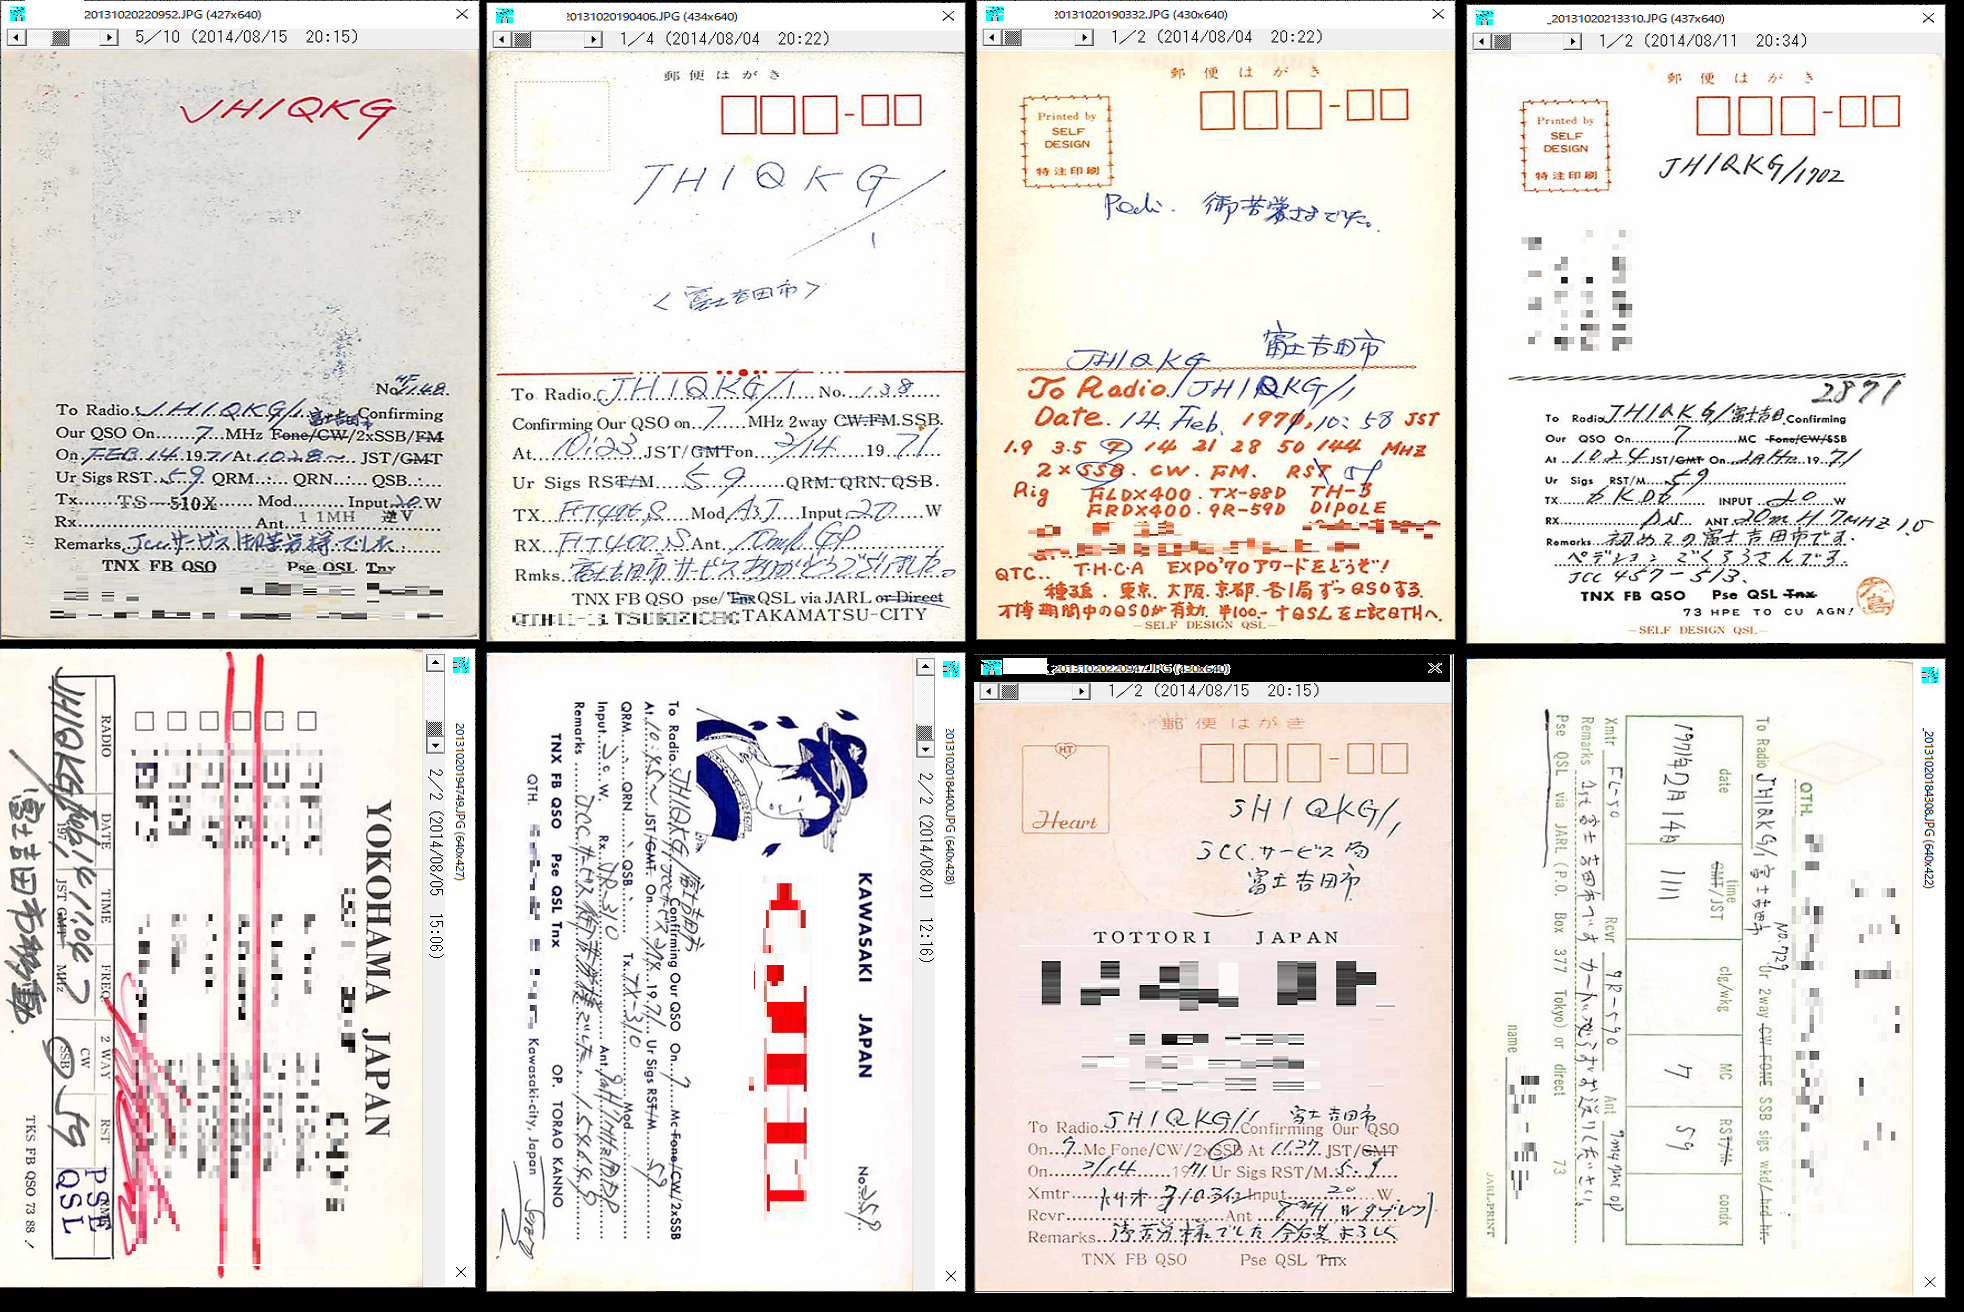 20131020220952.JPG (427x640)
5/10 (2014/08/15 20:15)
JH1QKG
No. 1148
To Radio JH1QKG/1 富士吉田市 Confirming
Our QSO On 7 MHz Fone/CW/2xSSB/FM
On FEB 14 1971 At 1028~ JST/GMT
Ur Sigs RST 59 QRM QRN QSB
Tx TS-510X Mod Input 20 W
Rx Ant 11MH 逆V
Remarks JCCサービス御苦労様でした
TNX FB QSO Pse QSL Tnx
20131020190406.JPG (434x640)
1/4 (2014/08/04 20:22)
郵便はがき
JH1QKG/
1
<富士吉田市>
To Radio JH1QKG/1 No. 138
Confirming Our QSO on 7 MHz 2way CW.FM.SSB.
At 10:23 JST/GMT on 2/14 1971
Ur Sigs RST/M 59 QRM.QRN.QSB.
TX FT400S Mod A3J Input 20 W
RX FT400S Ant 10mH GP
Rmks. 富士吉田市サービスありがとうございました。
TNX FB QSO pse/Tnx QSL via JARL or Direct
TAKAMATSU-CITY
20131020190332.JPG (430x640)
1/2 (2014/08/04 20:22)
郵便はがき
Printed by
SELF
DESIGN
特注印刷
Pedi. 御苦労さまでした。
JH1QKG 富士吉田市
To Radio JH1QKG/1
Date. 14. Feb. 1971, 10:58 JST
1.9 3.5 7 14 21 28 50 144 MHZ
2× SSB. CW. FM. RST 59
Rig FLDX400. TX-88D TH-3
FRDX400. 9R-59D DIPOLE
QTC.. T.H.C.A EXPO'70 アワードをどうぞ!
種追、東京、大阪、京都、各1局ずつQSOする
万博期間中のQSOが有効. ¥100.-+QSLを上記QTHへ.
-SELF DESIGN QSL-
_20131020213310.JPG (437x640)
1/2 (2014/08/11 20:34)
郵便はがき
Printed by
SELF
DESIGN
特注印刷
JH1QKG/1702
2871
To Radio JH1QKG/富士吉田 Confirming
Our QSO On 7 MC Fone/CW/SSB
At 1024 JST/GMT On 1971
Ur Sigs RST/M 59
TX 6KD6 INPUT 20 W
RX ANT 20mH 7MHZ
Remarks 初めての富士吉田市です.
ペディション ごくろうさんです.
JCC 457-513.
TNX FB QSO Pse QSL Tnx
73 HPE TO CU AGN!
-SELF DESIGN QSL-
20131020194749.JPG (640x427)
2/2 (2014/08/05 15:06)
YOKOHAMA JAPAN
RADIO DATE TIME FREQ 2 WAY RST
JH1QKG/1 Feb,14 197 11:06 JST GMT 7 MHz CW SSB 59 PSE QSL
富士吉田市移動
TKS FB QSO 73 88 !
20131020184400.JPG (640x428)
2/2 (2014/08/01 12:16)
KAWASAKI JAPAN
No 259
To Radio JH1QKG/富士吉田市 Confirming Our QSO On 7 Mc Fone/CW/2xSSB
At 10:45~ JST/GMT. On 2/14. 1971 Ur Sigs RST/M 59
QRM QRN QSB. Tx TX-310 Mod
Input 20 W. Rx JR-310 Ant
Remarks JCCサービス御苦労様でした
TNX FB QSO Pse QSL Tnx OP. TORAO KANNO
QTH. Kawasaki-city, Japan
20131020220947.JPG (430x640)
1/2 (2014/08/15 20:15)
郵便はがき
H.T.
Heart
JH1QKG/1
JCC.サービス局
富士吉田市
TOTTORI JAPAN
To Radio JH1QKG/1 富士吉田市 Confirming Our QSO
On 7 Mc Fone/CW/2xSSB At 11.27 JST/GMT
On 2/14 1971 Ur Sigs RST/M 5-9
Xmtr Input 20 W
Rcvr Ant
Remarks 御苦労様でした 今后共よろしく
TNX FB QSO Pse QSL Tnx
_20131020184308.JPG (640x422)
QTH.
To Radio JH1QKG/1 富士吉田市 No.729 Ur 2way CW FONE SSB sigs wkd/hrd hr.
date time GMT/JST clg/wkg MC RST/M condx
1971年2月14日 1111 7 59
Xmtr FL-50 Rcvr 9R-590 Ant
Remarks 1st 富士吉田市です カードかならずお送りください
Pse QSL via JARL (P.O. Box 377 Tokyo) or direct 73
name
JARL-PRINT